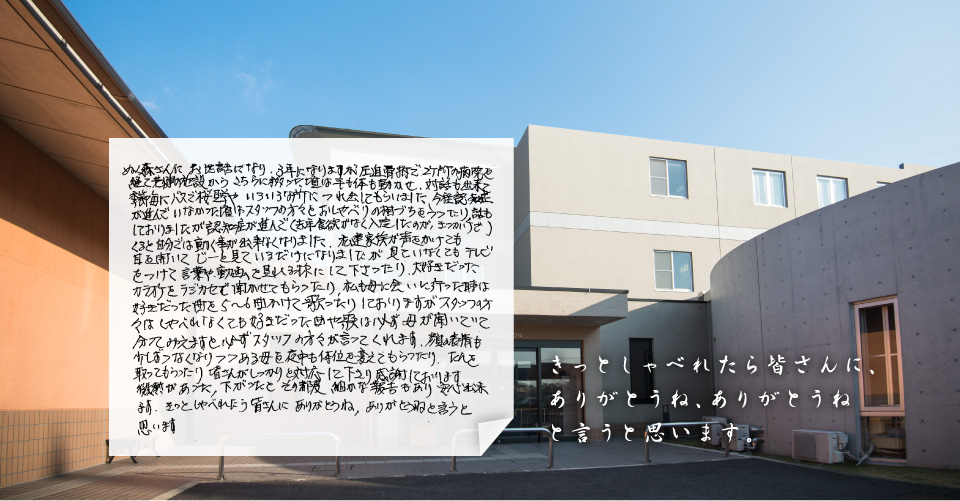 めん森さんに お世話になり、3年になりますが 圧迫骨折で2か所の病院を
経て老健の施設から こちらにお
季毎にバスで桜見や いろいろな所に つれ出してもらいました
が進んでいなかった頃はスタッフの方々とおしゃべりの相づちをうったり
しておりましたが認知症が進んで
くると自分では動く事が出来なくなりました、 家族が声をかけても
目を開いて じーと見ているだけになりましたが 見ていなくてもテレビ
をつけて 言葉や動画を見れる様にして下さったり、大好きだった
カラオケをラジカセで聞かせてもらったり、私も母に会いに行った時は
好きだった曲を 聞かけて歌ったりしておりますが スタッフの方
々はしゃべれなくても好きだった曲や歌は必ず母が聞いていて
分ってみえますと必ずスタッフの方々が言ってくれます、顔の表情も
少しずつなくなりつつある母を夜中も体位を変えてもらったり、たんを
取ってもらったり 皆さんがしっかりと対応して下さり感謝しております
微熱があった、下がったと その都度、細かな報告もあり 安心出来
ます、きっとしゃべれたら皆さんに ありがとうね、ありがとうねと言うと
思います
きっとしゃべれたら皆さんに、
ありがとうね、ありがとうね
と言うと思います。